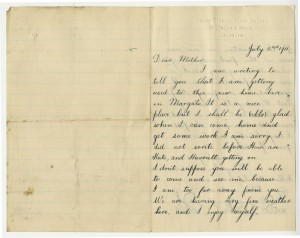 July 2nd
Dear Mother
I am writing to
tell you that I am getting
used to this new home here
in Margate It is a nice
place but I shall be glad
when I can come home and
get some work I am sorry I
did not write before How are
Kate and getting on
I dont suppose you will be able
to come and see me because
I am too far away from you
We are having very fine weather
here and I enjoy myself